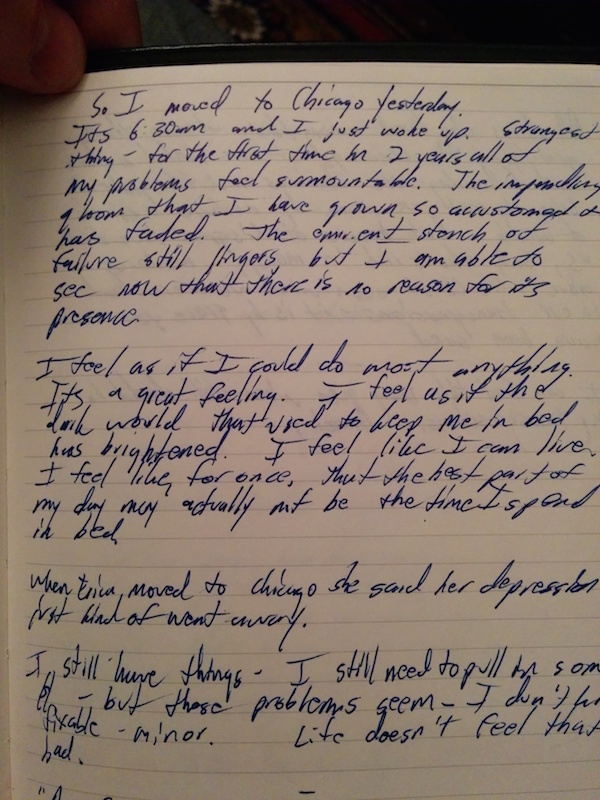 So I moved to Chicago yesterday.
Its 6:30am and I just woke up. Strangest
thing - for the first time in 2 years all of
my problems feel surmountable. The impending
gloom that I have grown so accustomed
has faded. The stench of
failure still lingers, but I am able to
see now that there is no reason for its
presence.
I feel as if I could do most anything.
Its a great feeling. I feel as if the
dark world that used to keep me in bed
has brightened. I feel like I can live.
I feel like, for once, that the best part of
my day may actually not be the time I spend
in bed.
When Erica moved to Chicago she said her depression
just kind of went away.
I still have things - I still need to pull in som
- but those problems seem - I don't
fixable - minor. Life doesn't feel that
bad.